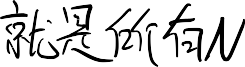 就是所有N